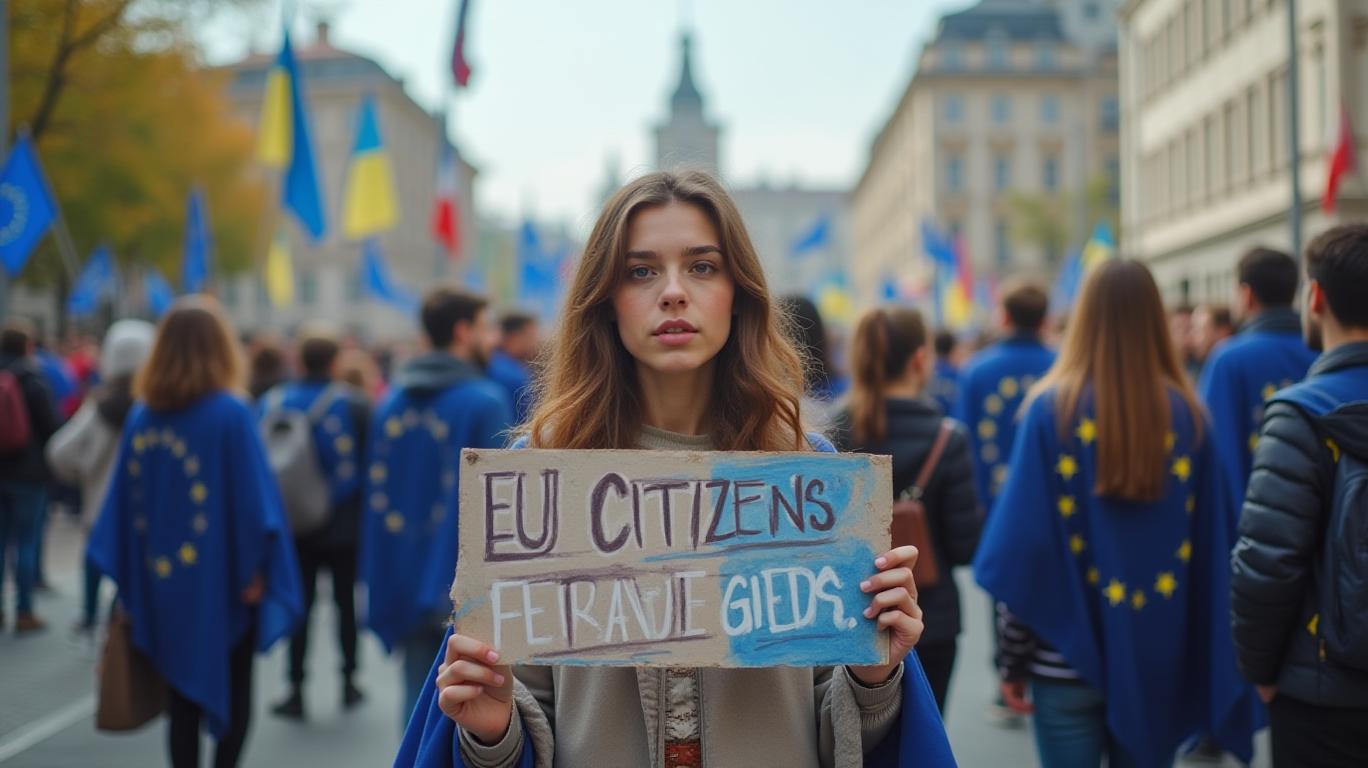 EU CITIZENS
FETRAVUE GIEDS.